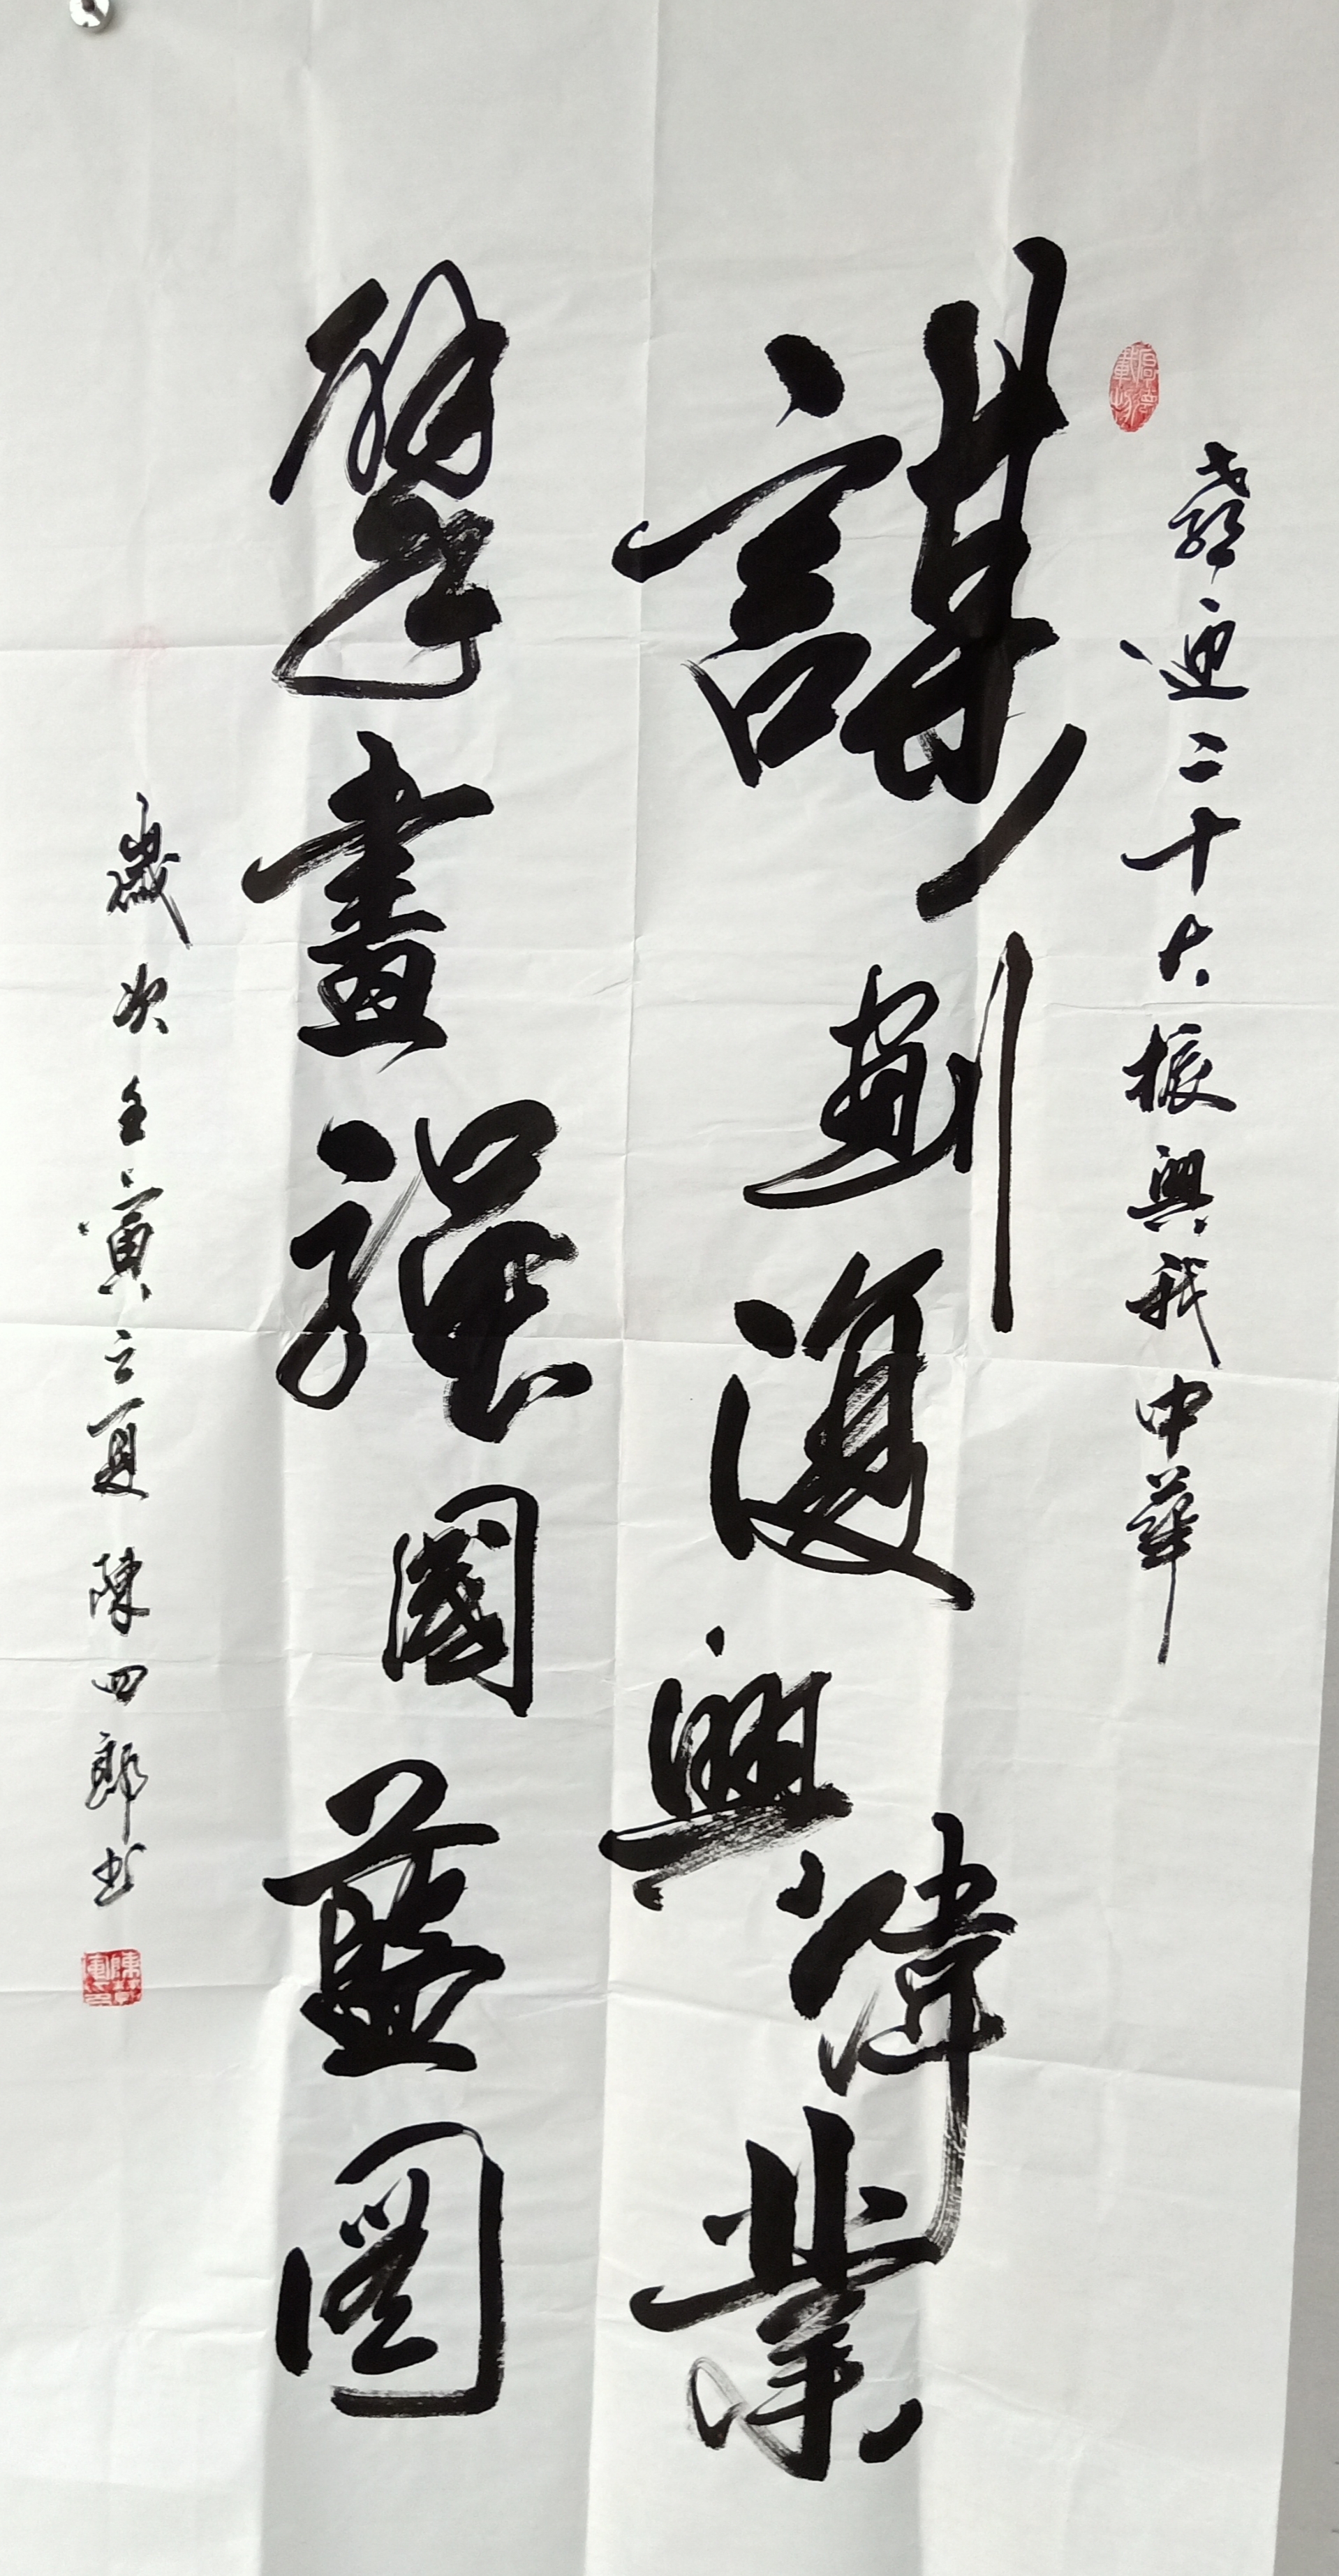 喜迎二十大振興我中華
謀劃復興偉業
擘畫强國藍圖
歲次壬寅立夏陳四郎书